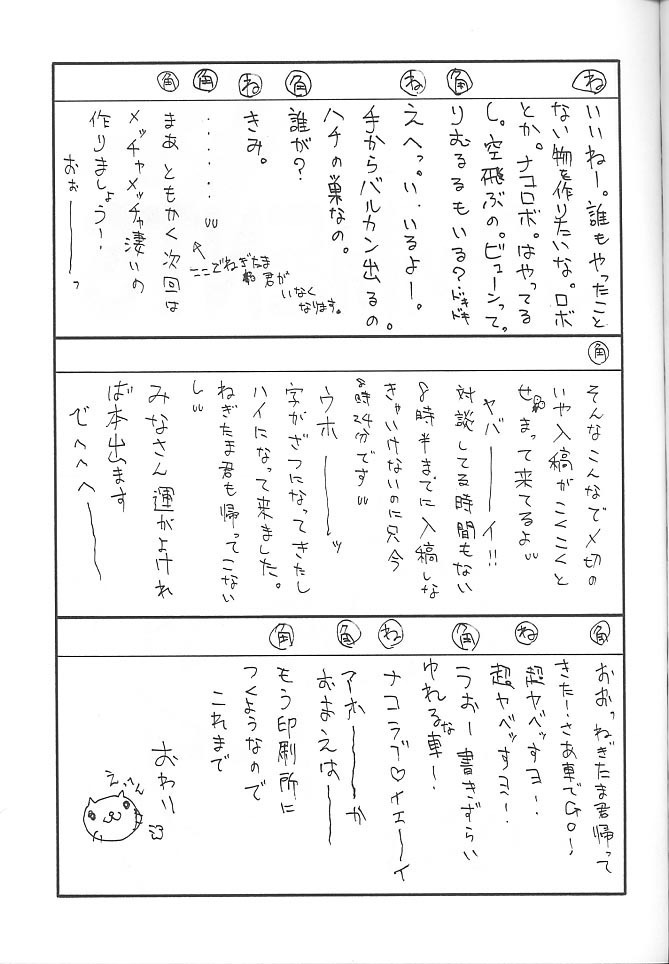 ね
いいねー。誰もやったこと
ない物を作りたいな。ロボ
とか。ナコロボ。はやってる
し。空飛ぶの。ビューンって。
角
りむるるもいる?ドキドキ
ね
えへっ。い、いるよー。
手からバルカン出るの。
ハチの巣なの。
角
誰が?
ね
きみ。
角
・・・・・・
←ここでねぎたま君が
いなく
なります。
角
まあ ともかく次回は
メッチャメッチャ凄いの
作りましょう!
おぉ――っ
角
そんなこんなで〆切の
いや入稿がこくこくと
せまって来てるよ
ヤバ――イ!!
対談してる時間もない
8時半までに入稿しな
きゃいけないのに只今
8時24分です
ウホ――ッ
字がざつになってきたし
ハイになって来ました。
ねぎたま君も帰ってこない
し
みなさん 運がよけれ
ば本出ます
でへへへ――
角
おおっねぎたま君帰って
きたー!さあ車でGO!
ね
超ヤベッすヨ!
超ヤベッすヨ!
角
うおー 書きずらい
ゆれるな車!
ね
ナコラブ♡イェーイ
角
アホ――か
おまえは――
角
もう印刷所に
つくようなので
これまで
おわり